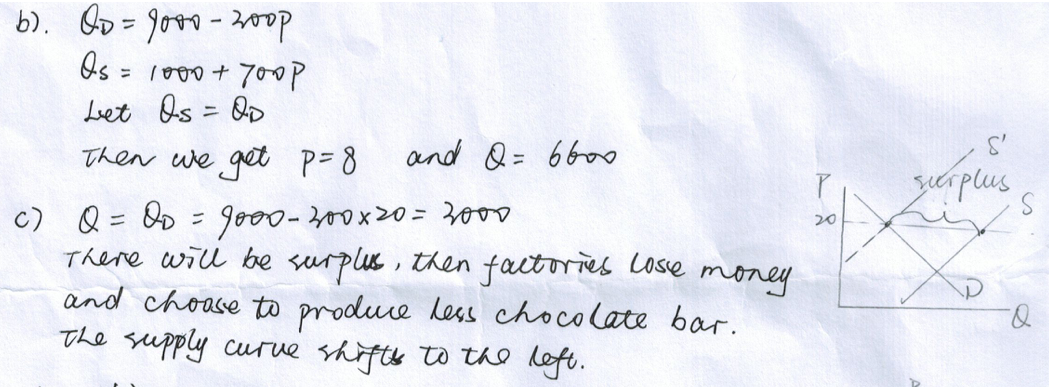 b). QD = 9000 - 300P
Qs = 1000 + 700P
Let Qs = QD
Then we get P=8 and Q = 6600
c) Q = QD = 9000 - 300×20 = 3000
There will be surplus, then factories lose money
and choose to produce less chocolate bar.
The supply curve shifts to the left.
S'
P surplus S
20
D
Q